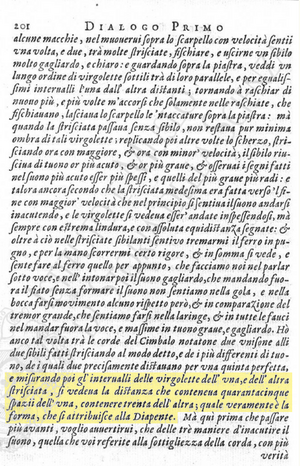 201 DIALOGO PRIMO
alcune macchie, nel muouerui sopra lo scarpello con velocità sentii
vna volta, e due, trà molte strisciate, fischiare, e vscirne vn sibilo
molto gagliardo, e chiaro: e guardando sopra la piastra, veddi vn
lungo ordine di virgolette sottili trà di loro parallele, e per egualissi-
mi interualli l'una dall'altra distanti; tornando à raschiar di
nuouo più, e più volte m'accorsi che solamente nelle raschiate, che
fischiauano, lasciaua lo scarpello le 'ntaccature sopra la piastra: mà
quando la strisciata passaua senza sibilo, non restaua pur minima
ombra di tali virgolette; replicando poi altre volte lo scherzo, stri-
sciando ora con maggiore, & ora con minor' velocità, il sibilo riu-
sciua di tuono or' più acuto, & or più graue, & osseruai i segni fatti
nel suono più acuto esser più spessi, e quelli del più graue più radi: e
talora ancora secondo che la strisciata medesima era fatta verso'l fi-
ne con maggior' velocità che nel principio si sentiua il suono andarsi
inacutendo, e le virgolette si vedeua esser'andate inspessendosi, mà
sempre con estrema lindura, e con assoluta equidistanza segnate: &
oltre à ciò nelle strisciate sibilanti sentiuo tremarmi il ferro in pu-
gno, e per la mano scorrermi certo rigore, & in somma si vede, e
sente fare al ferro quello per appunto, che facciamo noi nel parlar
sotto voce, e nell'intonar poi il suono gagliardo, che mandando fuo-
ra il fiato senza formare il suono non sentiamo nella gola, e nella
bocca farsi mouimento alcuno rispetto però, & in comparazione del
tremor grande, che sentiamo farsi nella laringe, & in tutte le fauci
nel mandar fuora la voce, e massime in tuono graue, e gagliardo. Hò
anco tal volta trà le corde del Cimbalo notatone due vnisone alli
due sibili fatti strisciando al modo detto, e de i più differenti di tuo-
no, de i quali due precisamente distauano per vna quinta perfetta,
e misurando poi gl'interualli delle virgolette dell'vna, e dell'altra
strisciata, si vedeua la distanza che conteneua quarantacinque
spazii dell'vna, contenere trenta dell'altra; quale veramente è la
forma, che si attribuisce alla Diapente. Mà quì prima che passare
più auanti, voglio auuertirui, che delle trè maniere d'inacutire il
suono, quella che voi referite alla sottigliezza della corda, con più
verità